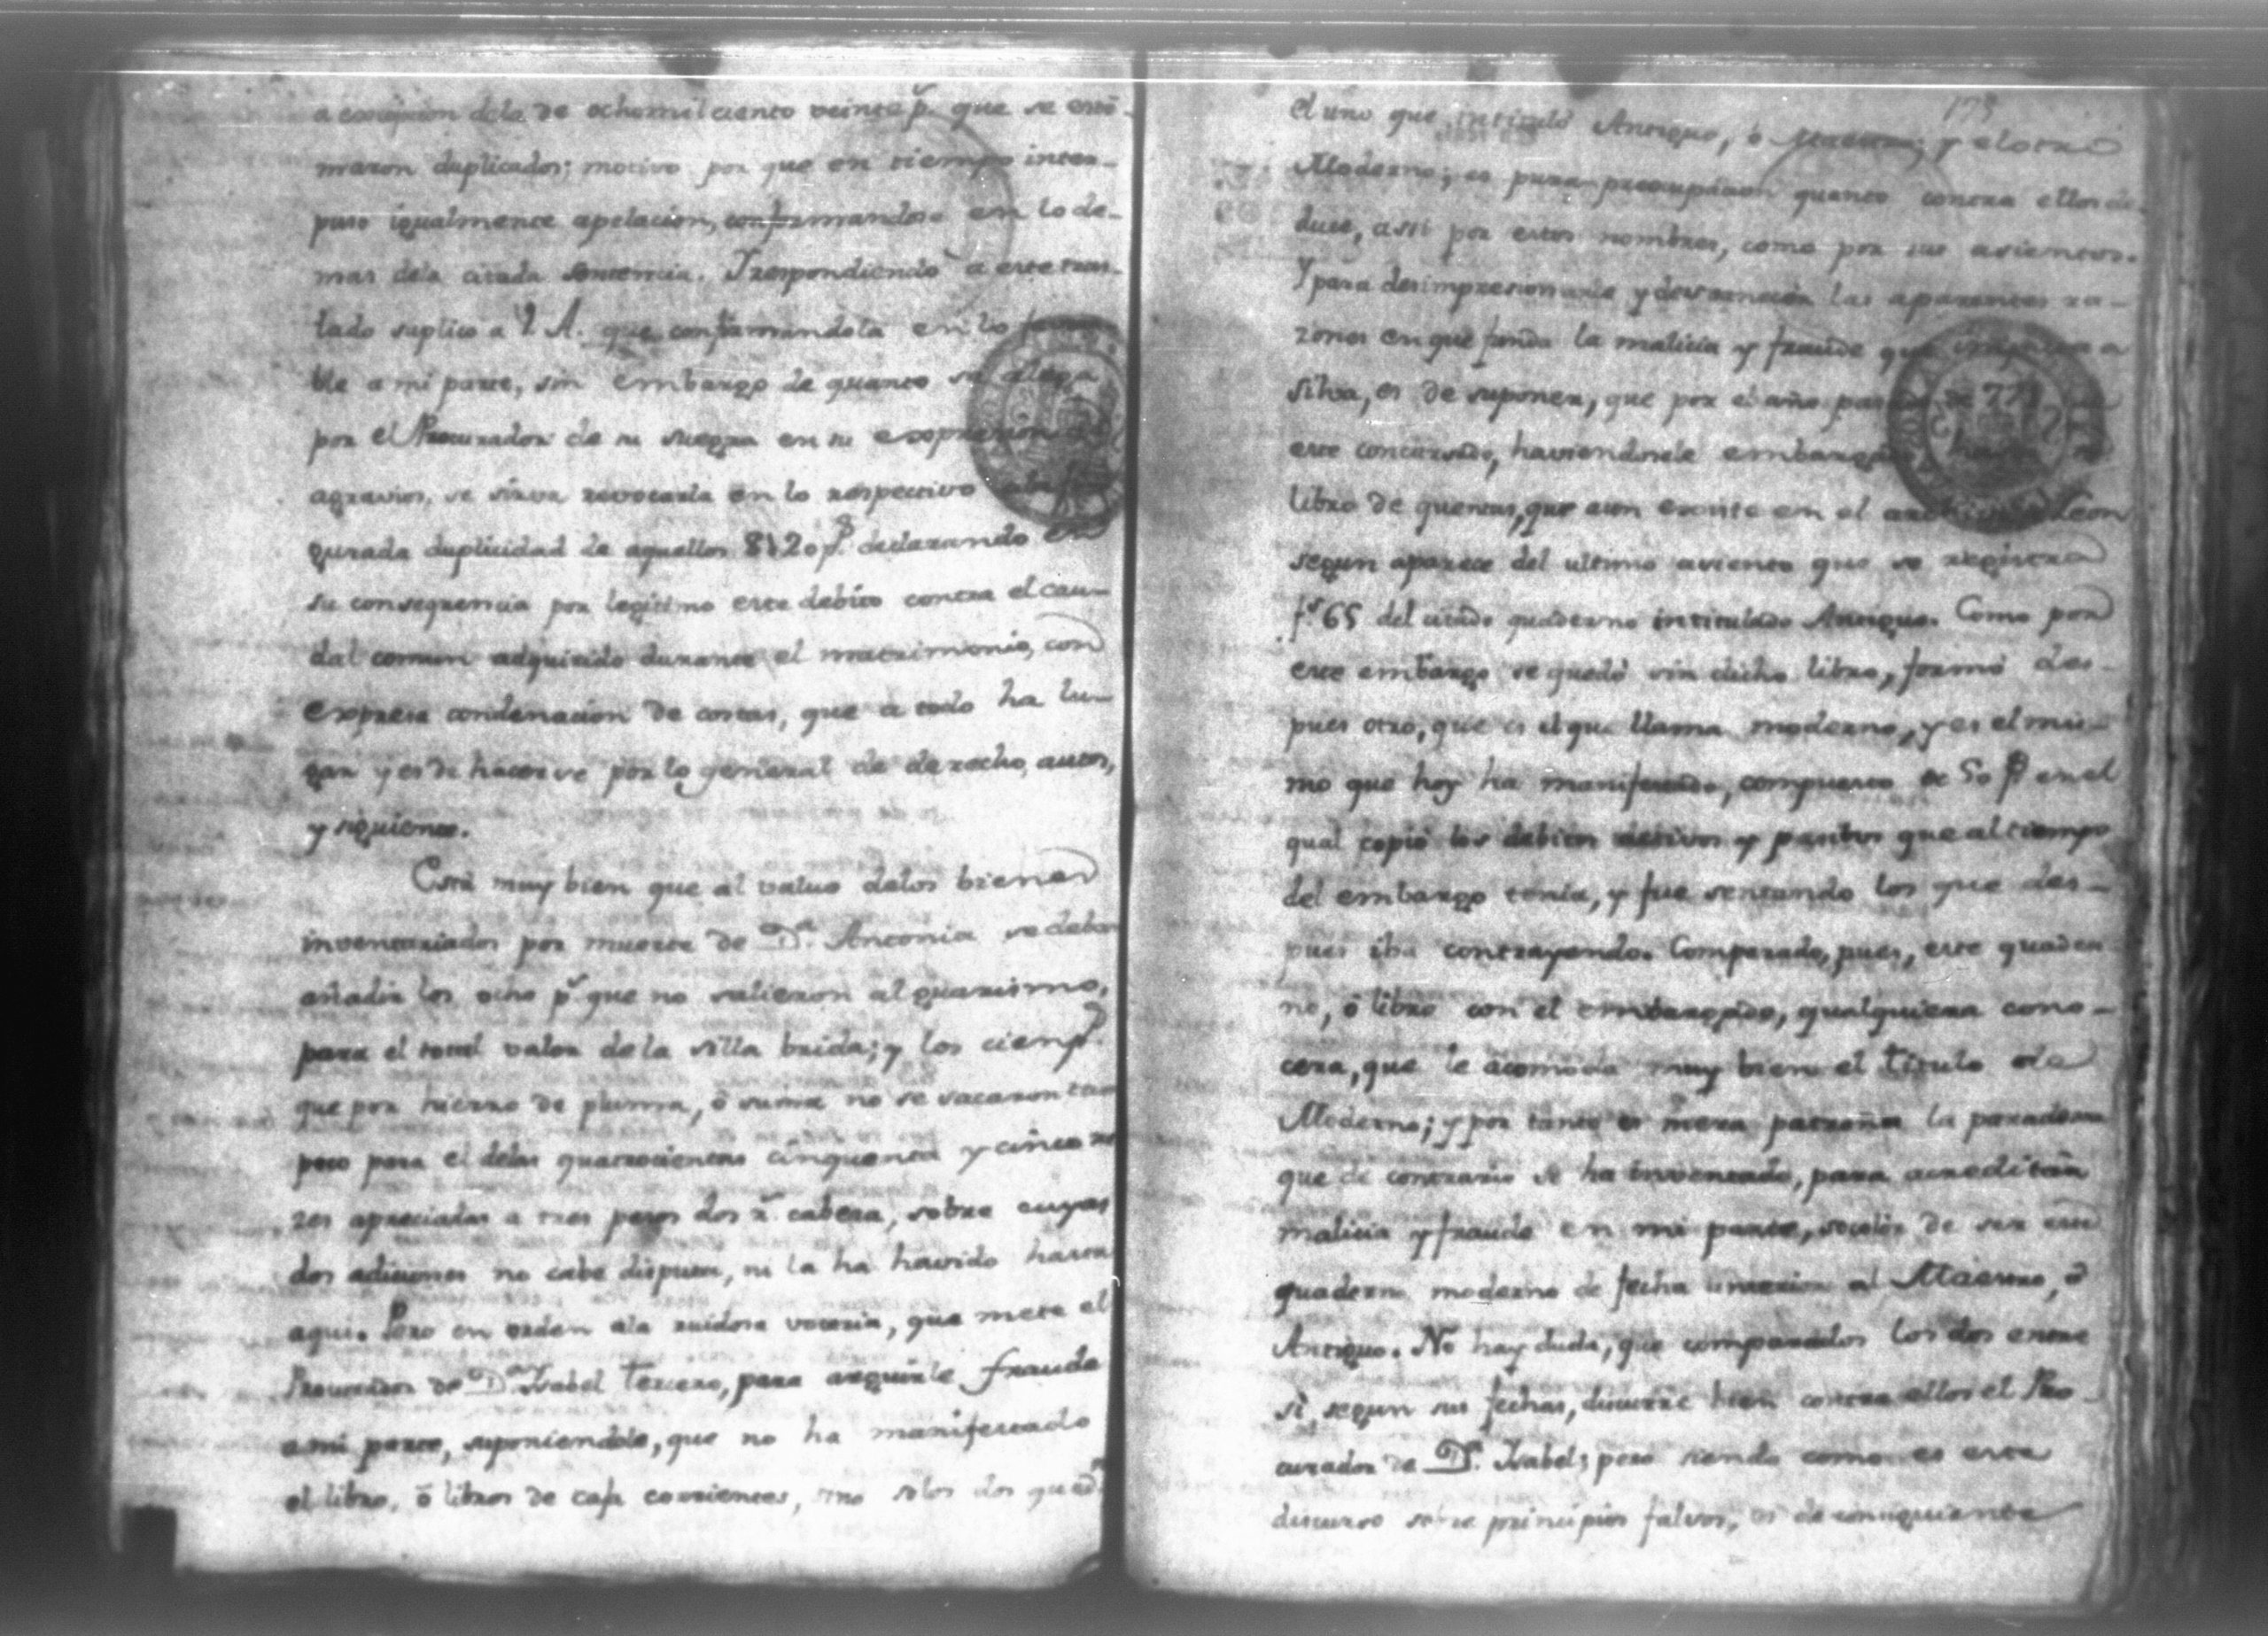 a excepcion dela de ochomil ciento veinte p.s que se esti-
maron duplicados; motivo por que en tiempo inter-
puso igualmente apelacion, conformandose en lo de-
mas dela citada sentencia. Y respondiendo a este tras-
lado suplico a V. A. que confirmandola en lo
ble a mi parte, sin embargo de quanto se alega
por el Procurador de su suegra en su expresion de
agravios, se sirva revocarla en lo respectivo
gurada duplicidad de aquellos 8120 p.s declarando en
su consequencia por legitimo este debito contra el cau-
dal comun adquirido durante el matrimonio, con
expresa condenacion de costas, que a todo ha lu-
gar y es de hacerse por lo general de derecho, autos,
y siguiente.
Está muy bien que al valuo delos bienes
inventariados por muerte de D.a Antonia se deban
añadir los ocho p.s que no salieron al guarismo,
para el total valor de la silla brida; y los cien p.s
que por hierro de pluma, ó suma no se sacaron tam
poco para el delas quatrocientas cinquenta y cinco re
zes apreciadas a tres pesos dos r.s cabeza, sobre cuyas
dos adiciones no cabe disputa, ni la ha havido hasta
aqui. Pero en orden ala ruidosa voceria, que mete el
Procurador de D.a Isabel Tercero, para arguirle fraude
a mi parte, suponiendole, que no ha manifestado
el libro, ó libros de caja corrientes, sino solos dos quad.s
173
el uno que intituló Antiguo, ó Maestro; y el otro
Moderno; es pura preocupacion quanto contra ellos de-
duce, asi por estos nombres, como por sus asientos.
Y para desimpresionarle y desvanecer las aparentes ra-
zones en que funda la malicia y fraude que imputa a
Silva, es de suponer, que por el año pasado de 77
este concursado, haviendosele embargado
libro de quentas, que aun existe en el
segun aparece del ultimo asiento que se registra
f.s 65 del citado quaderno intitulado Antiguo. Como por
este embargo se quedó sin dicho libro, formó des-
pues otro, que es el que llama moderno, y es el mis-
mo que hoy ha manifestado, compuesto de 50 f.s en el
qual copió los debitos activos y pasibos que al tiempo
del embargo tenia, y fue sentando los que des-
pues iba contrayendo. Comparado, pues, este quader
no, ó libro con el embargado, qualquiera cono-
cera, que le acomoda muy bien el titulo de
Moderno; y por tanto es mera patraña la paradoxa
que de contrario se ha inventado, para acreditar
malicia y fraude en mi parte, socolor de ser este
quaderno moderno de fecha anterior al Maestro, ó
Antiguo. No hay duda, que comparados los dos entre
sí, segun sus fechas, discurre bien contra ellos el Pro-
curador de D.a Isabel; pero siendo como es este
discurso sobre principios falsos, es de consiguiente